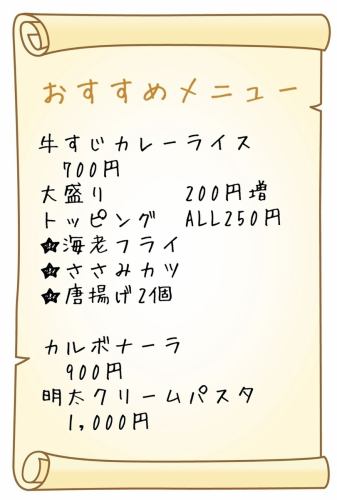 おすすめメニュー
牛すじカレーライス
700円
大盛り 200円増
トッピング ALL250円
★海老フライ
★ささみカツ
★唐揚げ2個
カルボナーラ
900円
明太クリームパスタ
1,000円